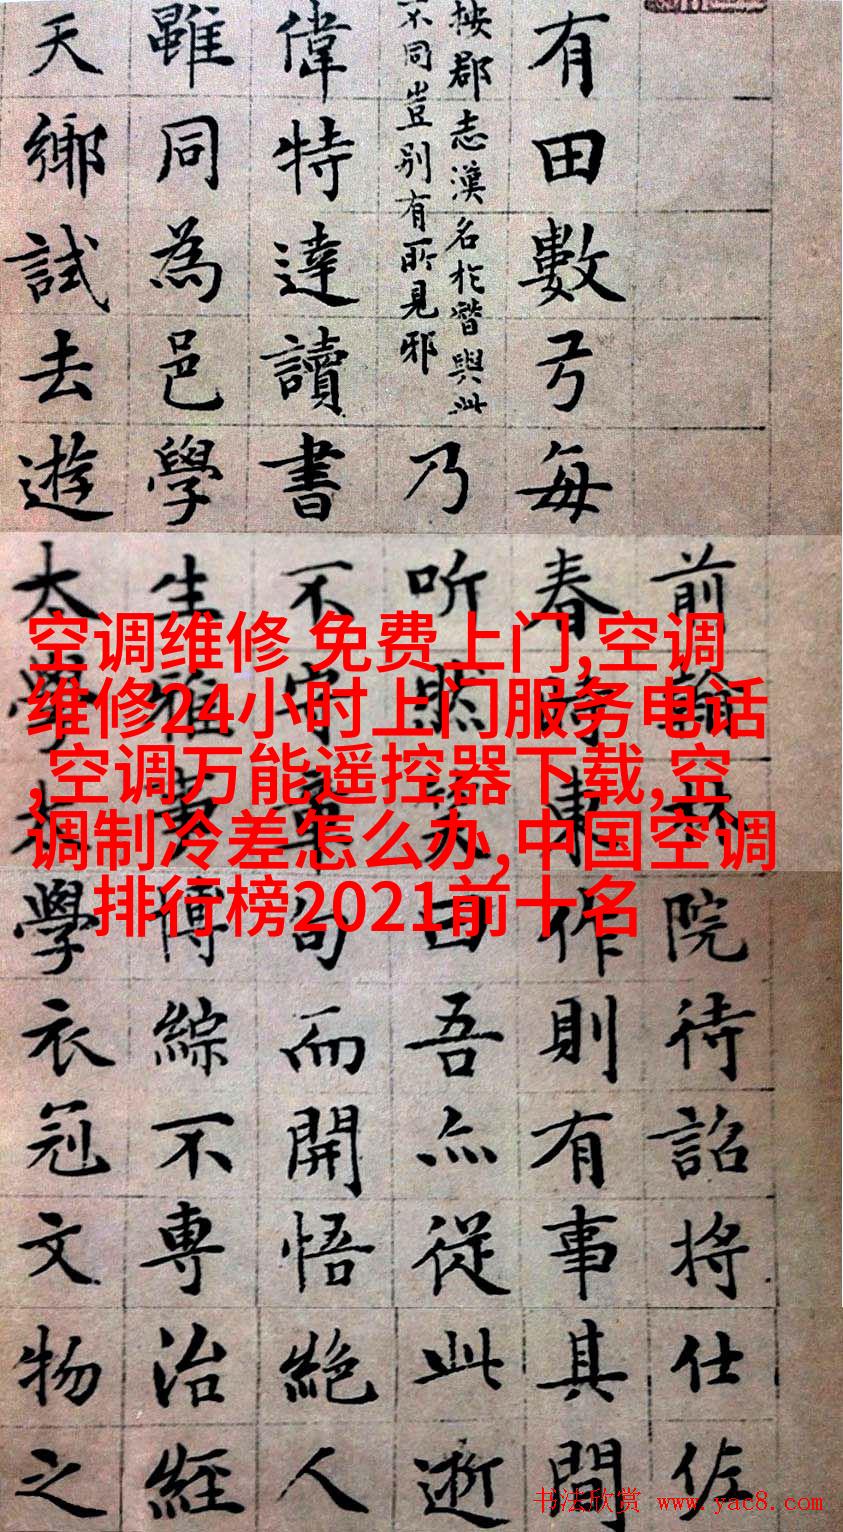 前翰林院待詔將仕佐
有田數弓每春時東作則有事其間
按郡志漢名於潛與此
不同豈別有所見邪
乃听然曰吾亦從此逝
偉特達讀書不守章句而開悟絕人
雖同為邑學生雅事博綜不專治經
天鄉試去遊太學太學衣冠文物之
空调维修 免费上门,空调
维修24小时上门服务电话
,空调万能遥控器下载,空
调制冷差怎么办,中国空调
排行榜2021前十名
书法欣赏 www.yac8.com